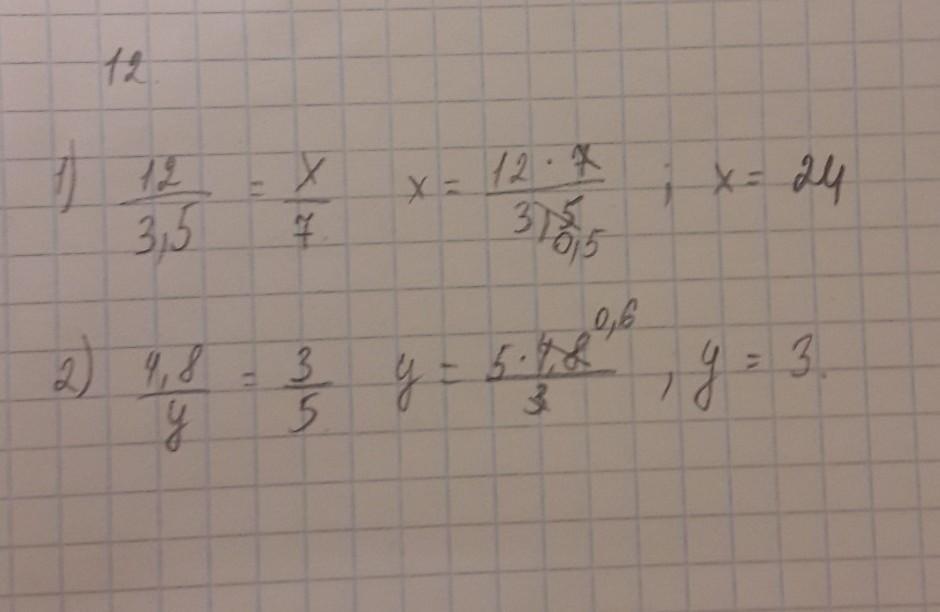 12.
1) 12/3,5 = x/7 x = 12 · 7/3,5 0,5 ; x = 24
2) 1,8/y = 3/5 y = 5 · 1,8 0,6/3 , y = 3.